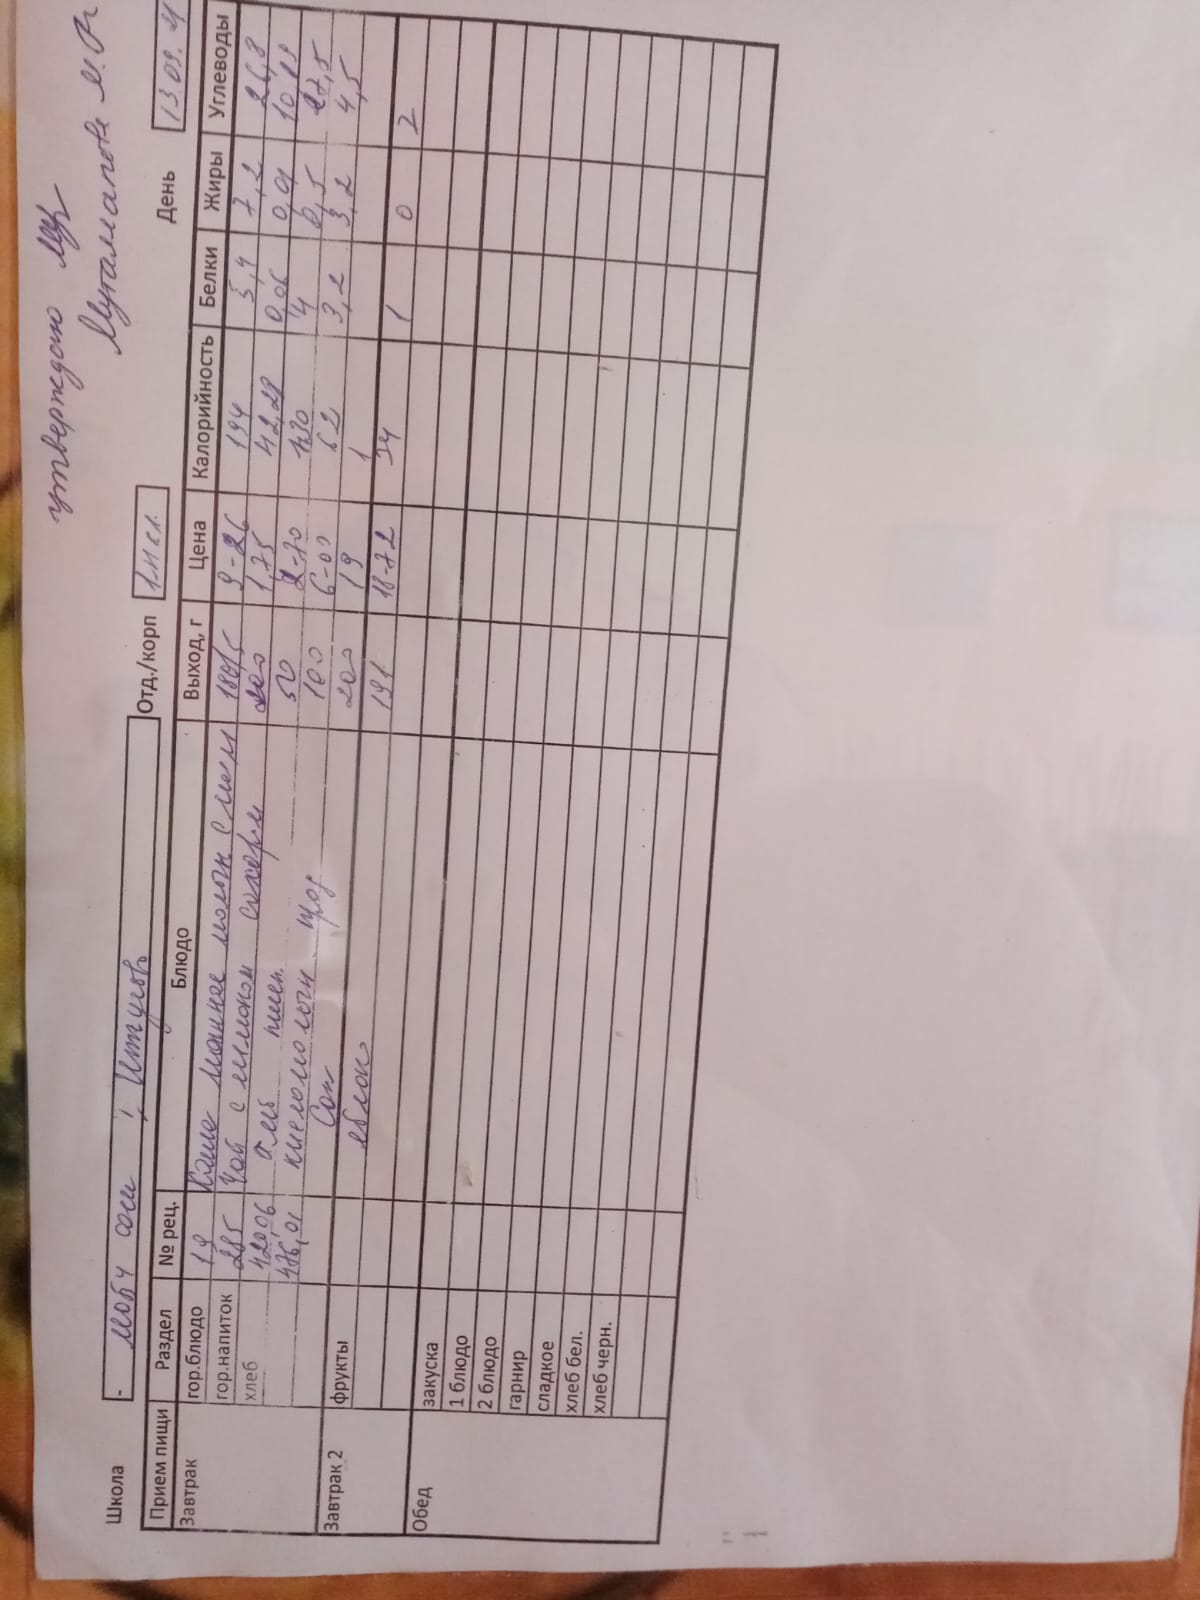 утверждаю
Школа - МОБУ СОШ Отд./корп 1-11 кл. День 13.09.21
Прием пищи Раздел № рец. Блюдо Выход, г Цена Калорийность Белки Жиры Углеводы
Завтрак гор.блюдо 19 Каша манная молоч с мал 180/5 9-26 194 5,4 7,2 26,8
гор.напиток 285 Чай с лимоном сахаром 200 1,75 42,28 0,06 0,01 10,19
хлеб 420,06 хлеб пшен. 50 2-70 130 4 0,5 27,5
476,01 кисломолочн прод 100 6-00 62 3,2 3,2 4,5
Завтрак 2 фрукты Сок 200 19 1
яблоко 191 18-72 34 1 0 2
Обед закуска
1 блюдо
2 блюдо
гарнир
сладкое
хлеб бел.
хлеб черн.